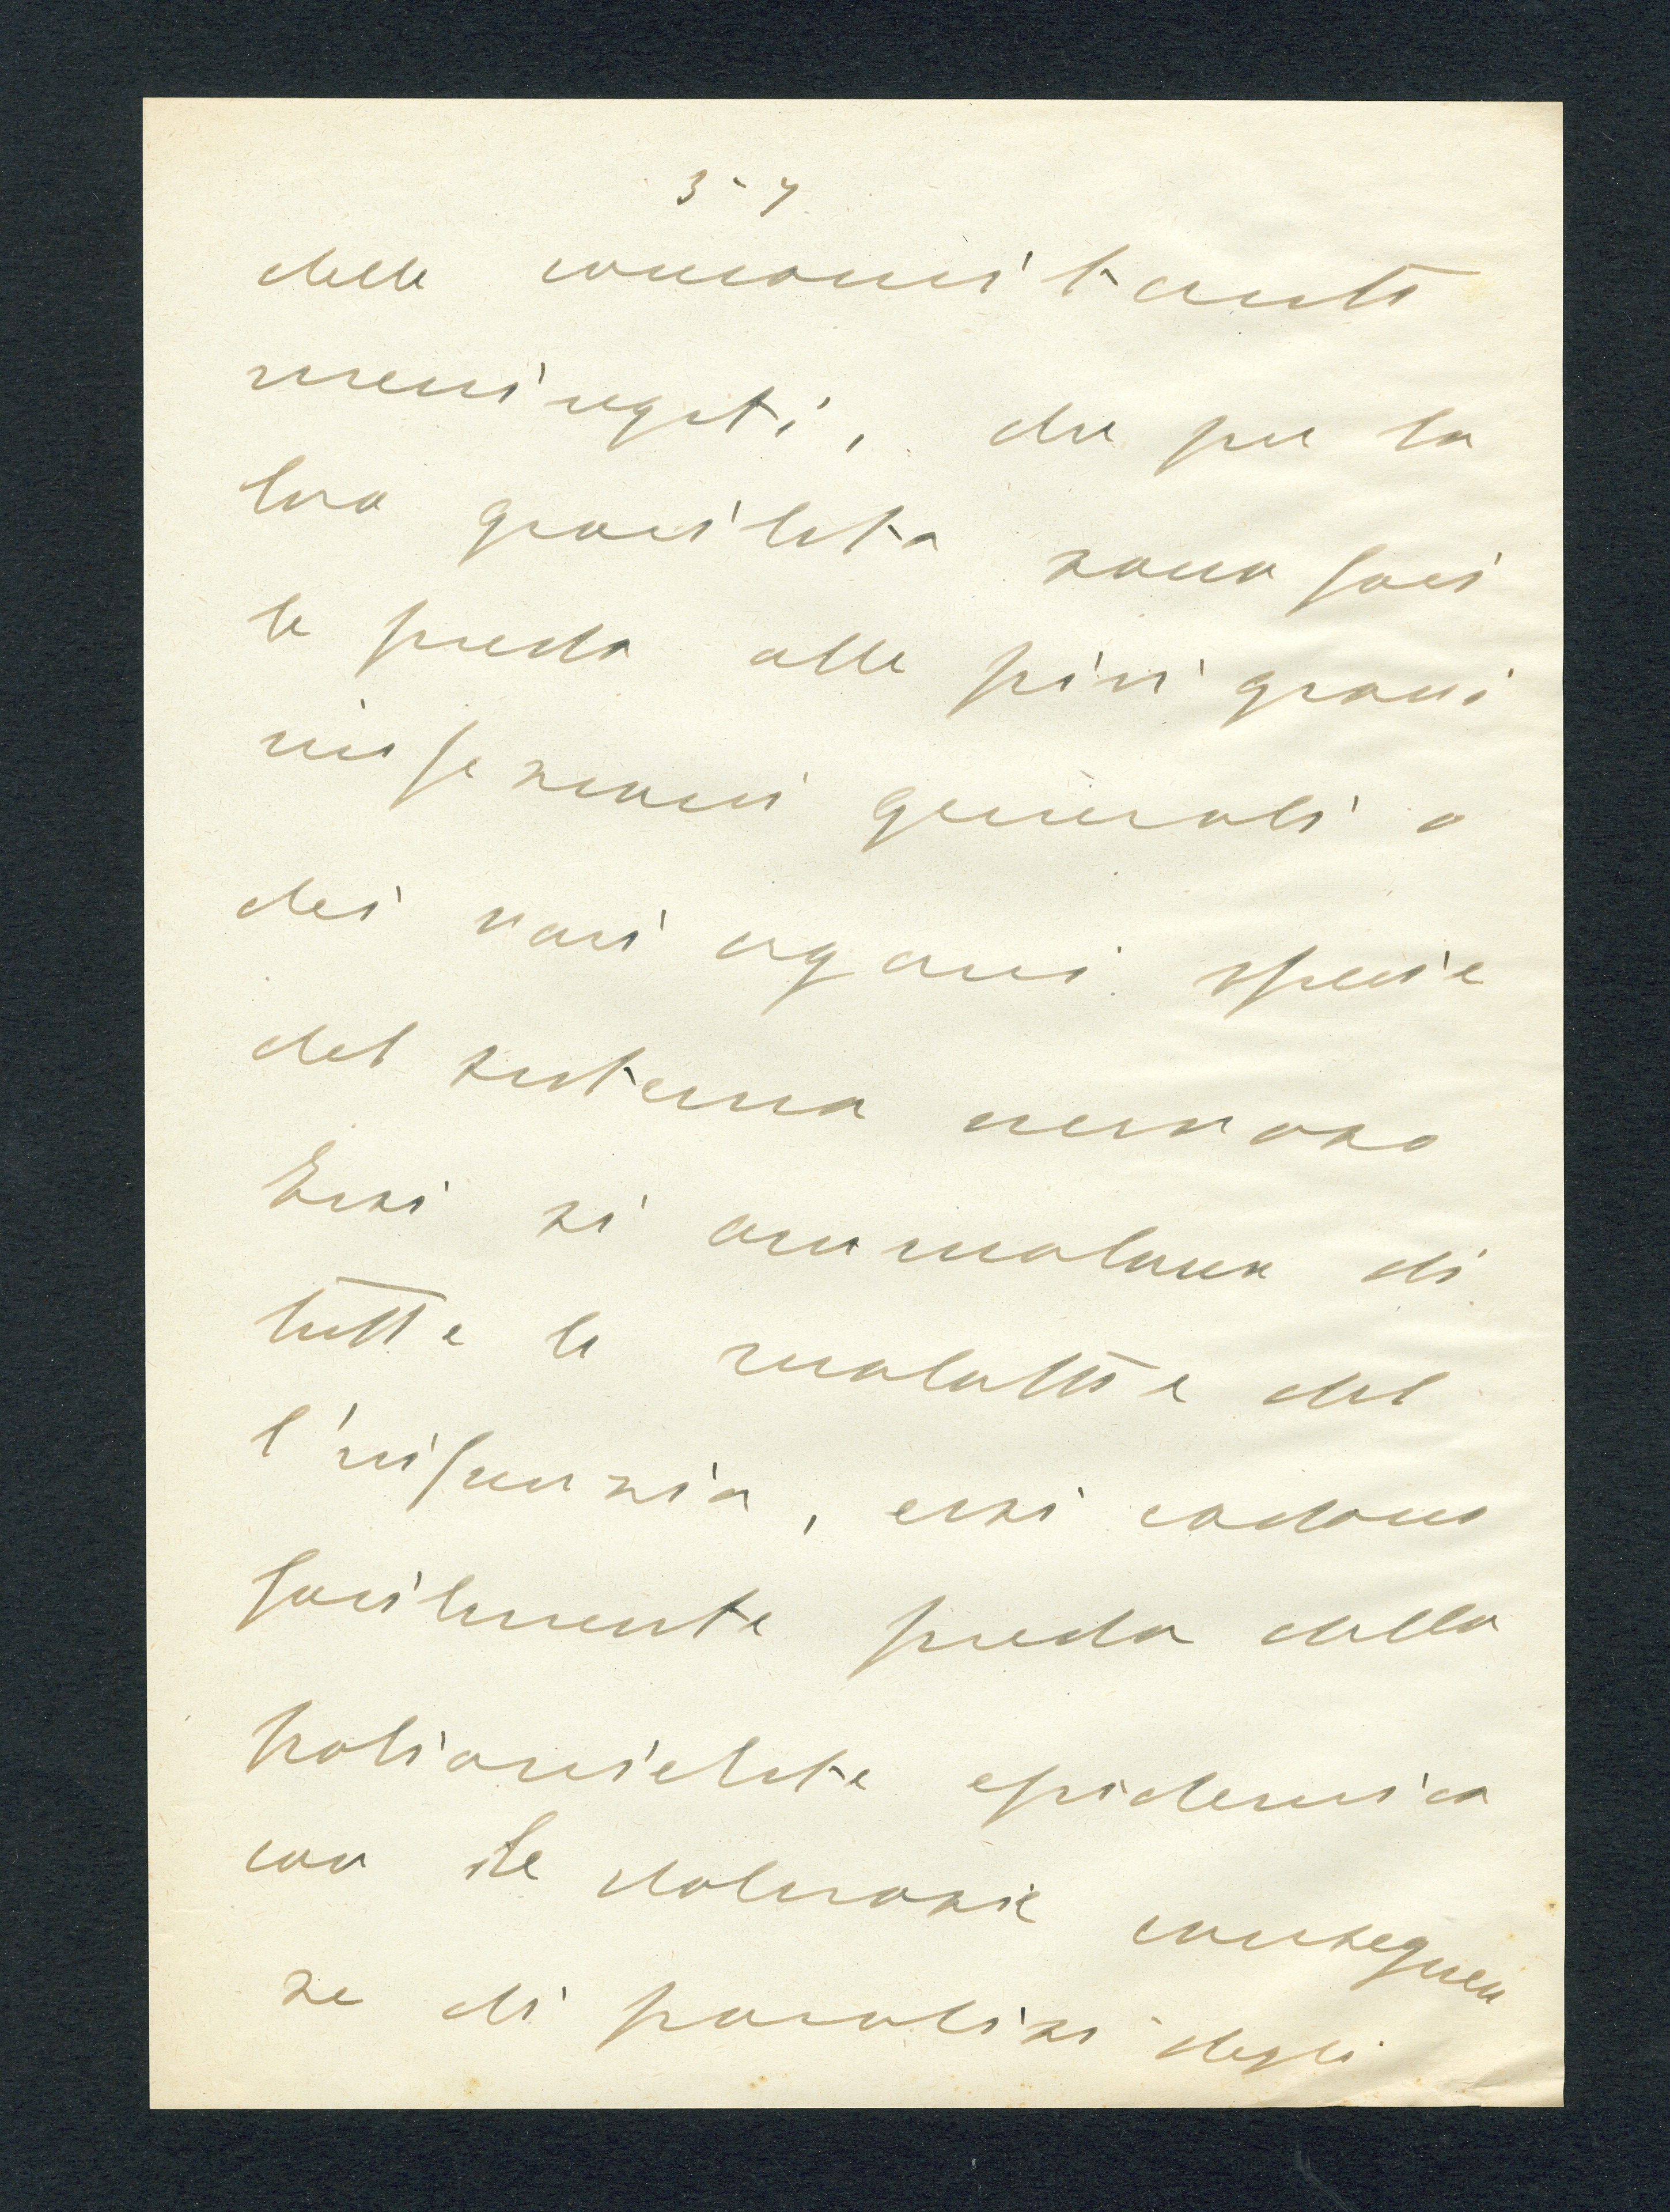 3-4
delle concomitanti
meningiti, che per la
loro gracilità sono faci
le preda alle più gravi
infezioni generali o
dei vari organi specie
del sistema nervoso
Essi si ammalano di
tutte le malattie del
l'infanzia, essi cadono
facilmente preda della
poliomielite epidemica
con le dolorose conseguen
ze di paralisi degli